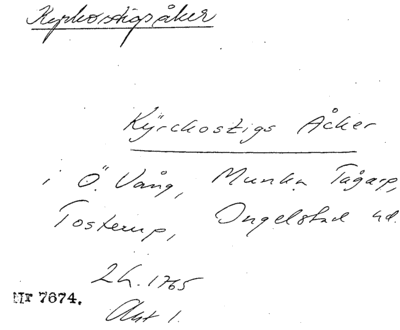 Kyrkostigsåker
Kÿrckostigs Åcker
i Ö. Vång, Munka Tågarp,
Tosterup, Ingelstad hd.
Lh. 1765
Nr 7674.
Akt 1.